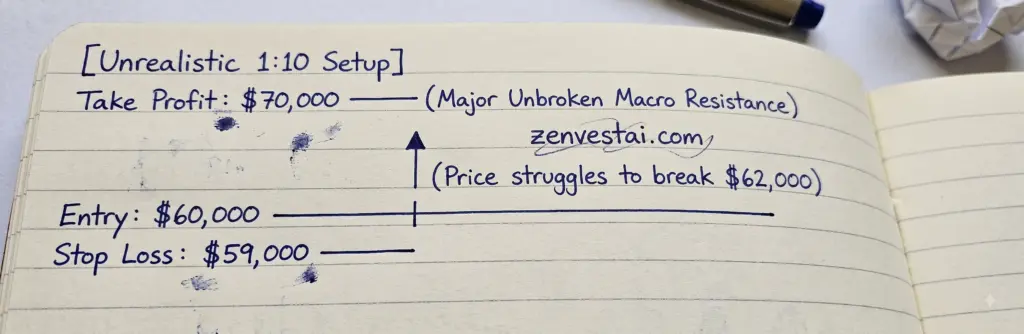 [Unrealistic 1:10 Setup]
Take Profit: $70,000 (Major Unbroken Macro Resistance)
zenvestai.com
(Price struggles to break $62,000)
Entry: $60,000
Stop Loss: $59,000